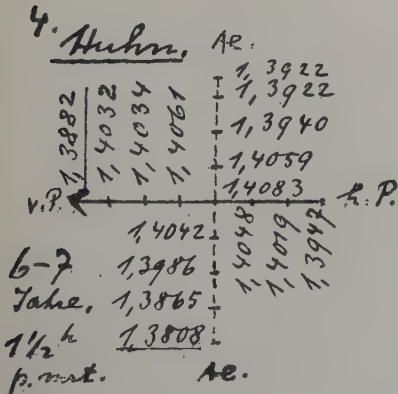 4.
Huhn.
Ae.
1,3922
1,3922
1,3940
1,4059
1,4083
1,3882
1,4032
1,4034
1,4061
v.P.
h.P.
1,4042
1,3986
1,3865
1,3808
1,4048
1,4019
1,3947
6-7
Jahre.
1½ h
p. mrt.
Ae.